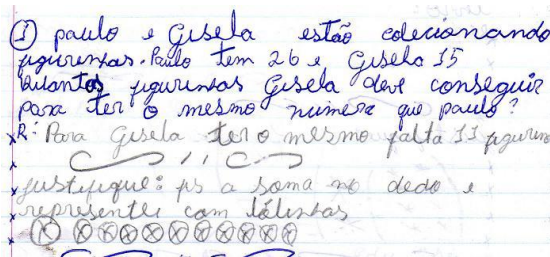 ① paulo e Gisela estão colecionando
figurinhas. Paulo tem 26 e Gisela 15
Quantos figurinhas Gisela deve conseguir
para ter o mesmo numero que paulo?
R: Para Gisela ter o mesmo falta 11 figurinha
justifique: fis a soma no dedo e
representei com bolinhas